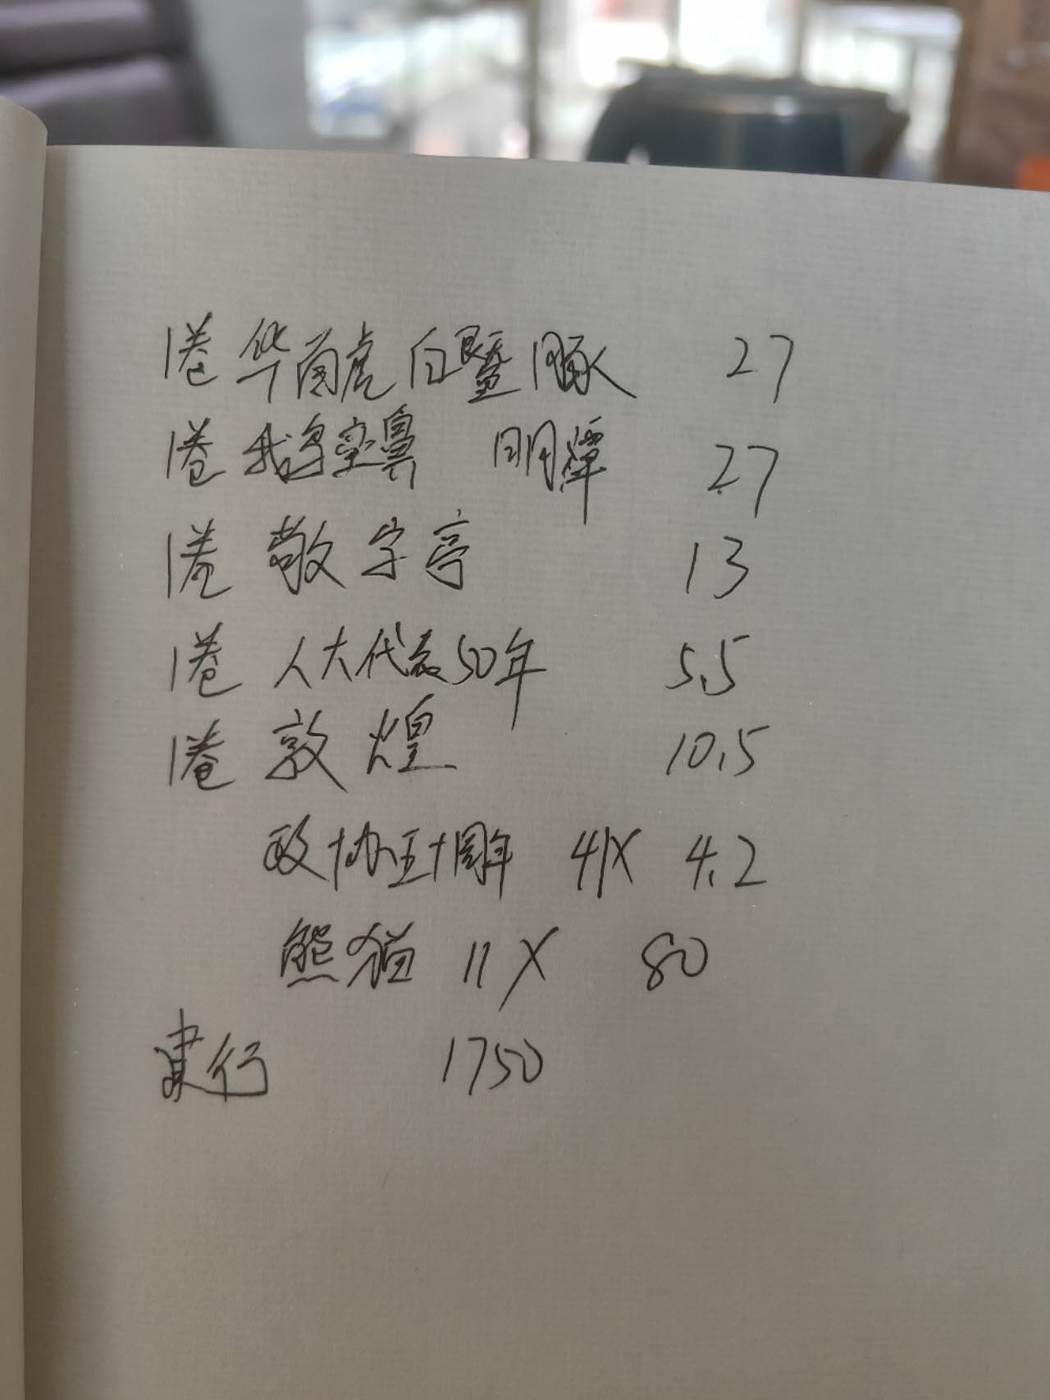 1卷 华南虎 白暨豚 27
1卷 鹅銮鼻 日月潭 27
1卷 敬字亭 13
1卷 人大代表50年 5.5
1卷 敦煌 10.5
政协五十周年 41X 4.2
熊猫 11X 80
建行 1750